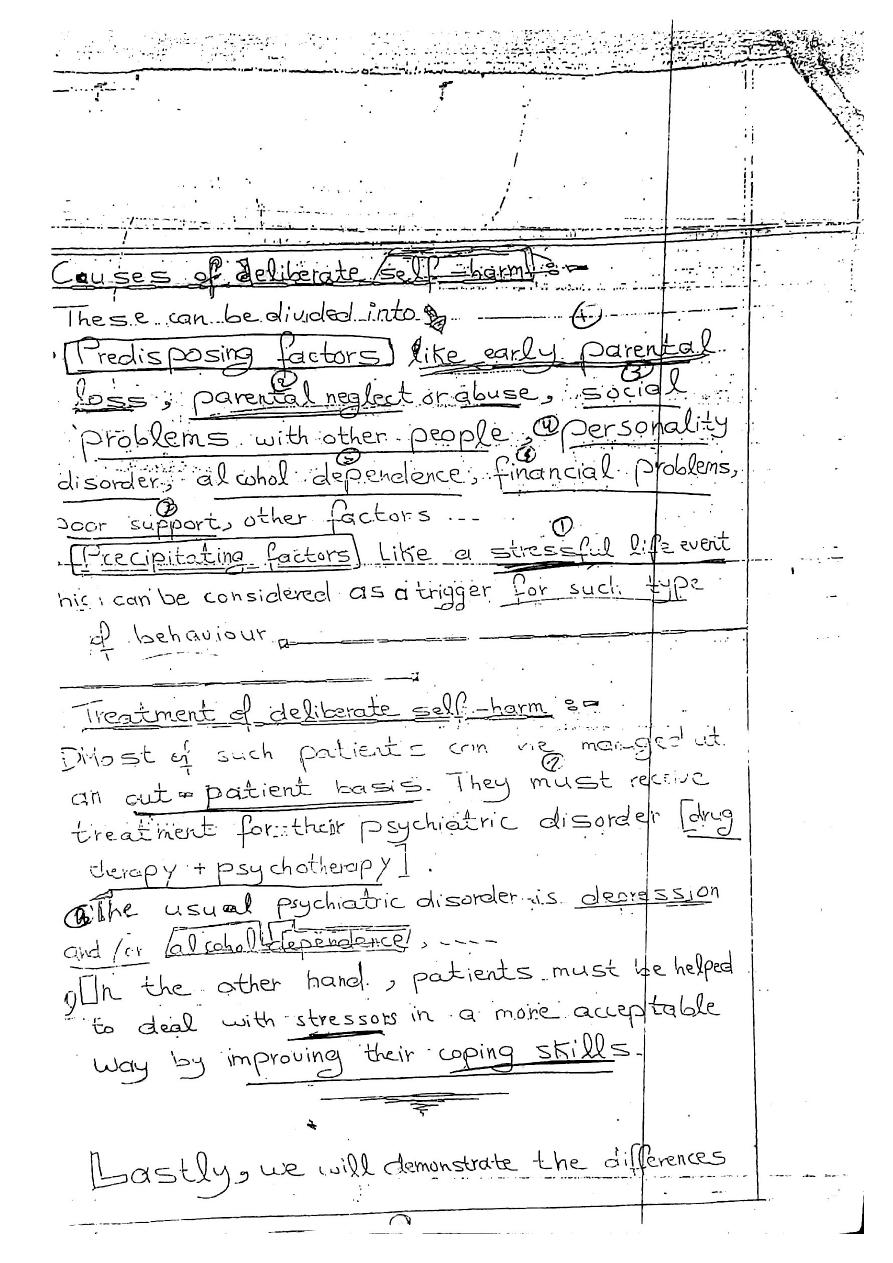 Causes of deliberate self-harm :-
These can be divided into
Predisposing factors like early parental
loss, ② parental neglect or abuse, ③ social
problems with other people, ④ personality
disorder, ⑤ alcohol dependence, financial problems,
poor support, other factors ...
Precipitating factors Like a ① stressful life event
can be considered as a trigger for such type
of behaviour
Treatment of deliberate self-harm :-
① Most of such patients can be managed at
an out-patient basis. ② They must receive
treatment for their psychiatric disorder [drug
therapy + psychotherapy].
The usual psychiatric disorder is depression
and/or alcohol dependence, ----
On the other hand, patients must be helped
to deal with stressors in a more acceptable
way by improving their coping skills.
Lastly, we will demonstrate the differences